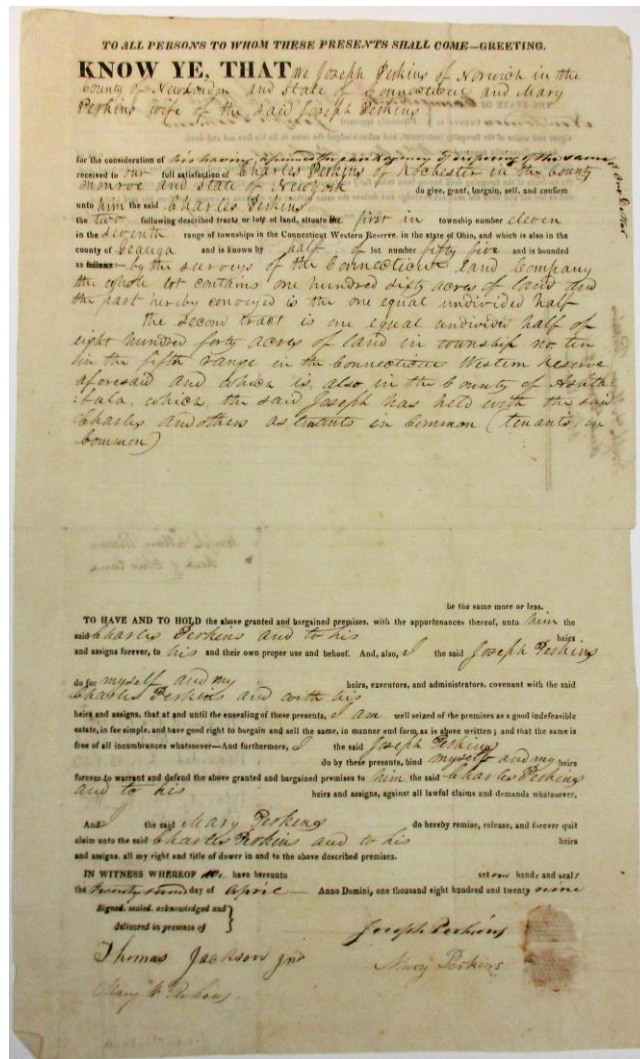 TO ALL PERSONS TO WHOM THESE PRESENTS SHALL COME—GREETING.
KNOW YE, THAT We Joseph Perkins of Norwich in the
County of New London and State of Connecticut and Mary
Perkins wife of the said Joseph Perkins
for the consideration of his having of the same
received to our full satisfaction of Charles Perkins of Rochester in the County
Monroe and State of New York do give, grant, bargain, sell, and confirm
unto him the said Charles Perkins
the two following described tracts or lots of land, situate the first in township number eleven
in the seventh range of townships in the Connecticut Western Reserve, in the state of Ohio, and which is also in the
county of Geauga and is known by half of lot number fifty five and is bounded
as follows— by the surveys of the Connecticut land Company
the whole lot contains one hundred sixty acres of land and
the part hereby conveyed is the one equal undivided half
The second tract is one equal undivided half of
eight hundred forty acres of land in township no. ten
in the fifth range in the Connecticut Western Reserve
aforesaid and which is, also in the County of Ashta
:bula, which the said Joseph has held with the said
Charles and others as tenants in Common (tenants in
Common)
be the same more or less.
TO HAVE AND TO HOLD the above granted and bargained premises, with the appurtenances thereof, unto him the
said Charles Perkins and to his heirs
and assigns forever, to his and their own proper use and behoof. And, also, I the said Joseph Perkins
do for myself and my heirs, executors, and administrators, covenant with the said
Charles Perkins and with his
heirs and assigns, that at and until the ensealing of these presents, I am well seized of the premises as a good indefeasible
estate, in fee simple, and have good right to bargain and sell the same, in manner and form as is above written; and that the same is
free of all incumbrances whatsoever—And furthermore, I the said Joseph Perkins
do by these presents, bind myself and my heirs
forever to warrant and defend the above granted and bargained premises to him the said Charles Perkins
and to his heirs and assigns, against all lawful claims and demands whatsoever.
And I the said Mary Perkins do hereby remise, release, and forever quit
claim unto the said Charles Perkins and to his heirs
and assigns, all my right and title of dower in and to the above described premises.
IN WITNESS WHEREOF We have hereunto set our hands and seals
the twenty second day of April — Anno Domini, one thousand eight hundred and twenty nine
Signed, sealed, acknowledged and
delivered in presence of
Joseph Perkins
Thomas Jackson jnr
Mary Perkins
Mary Perkins.